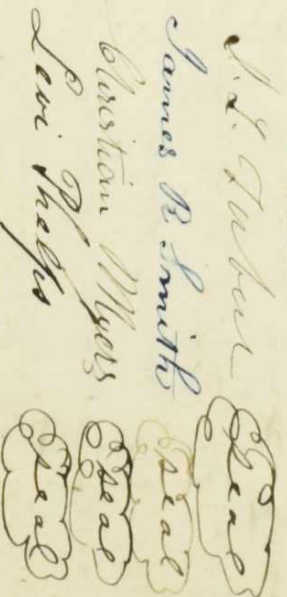 J. L. Tubal Seal
James R Smith Seal
Christian Myers Seal
Levi Phelps Seal